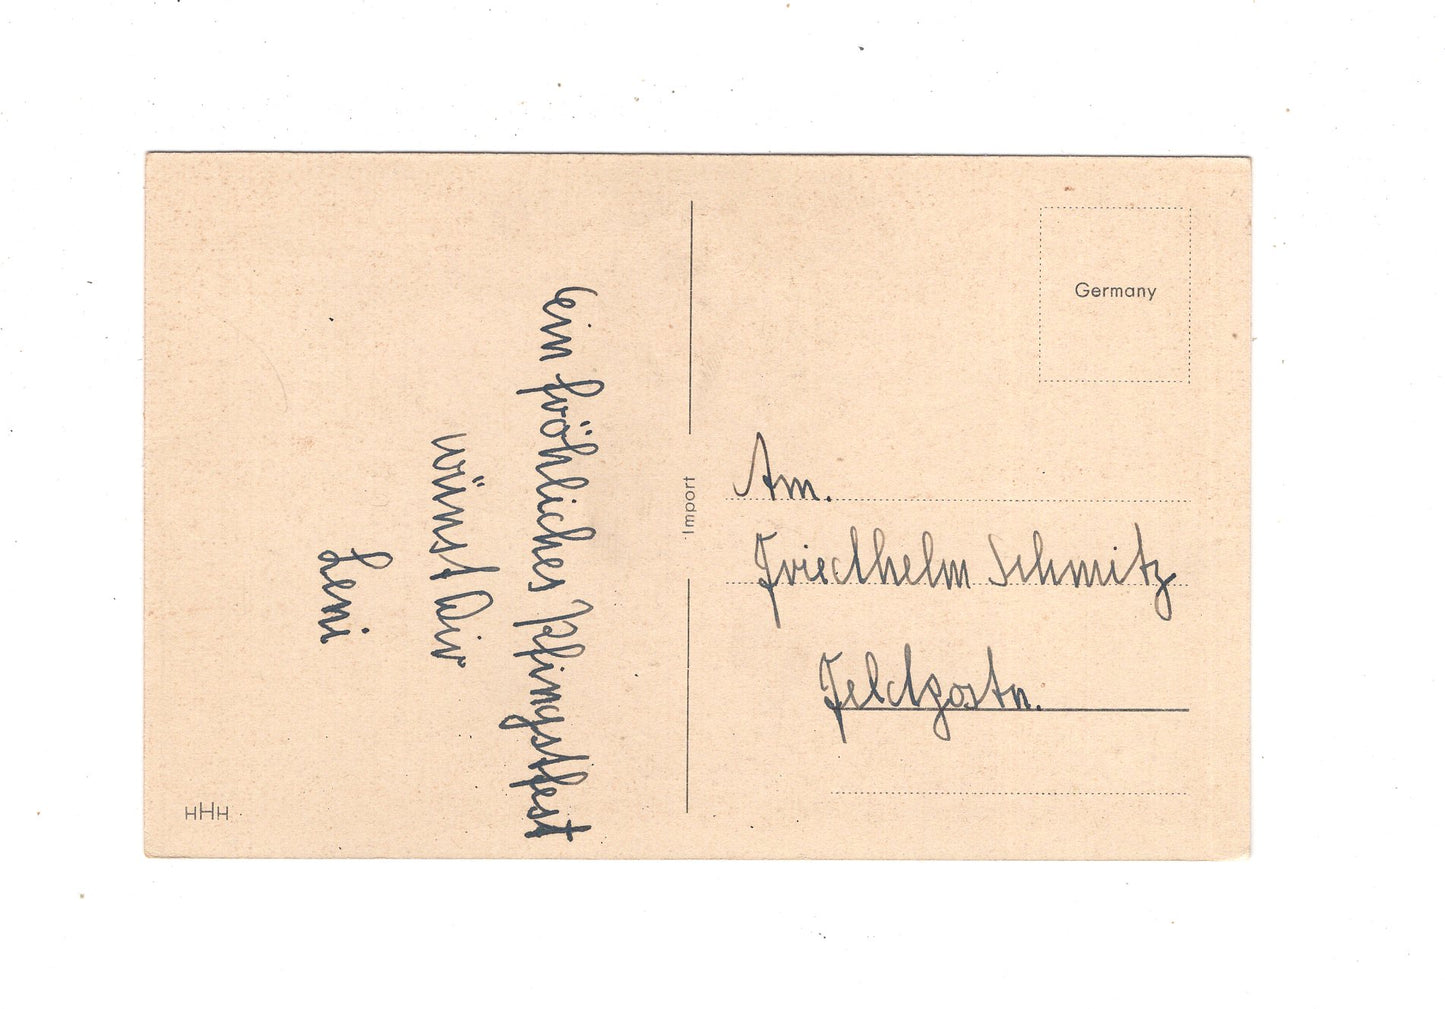 ein fröhliches Pfingstfest
wünst Dir
Leni
HHH
Import
Germany
Am.
Friedhelm Schmitz
Feldpostn.